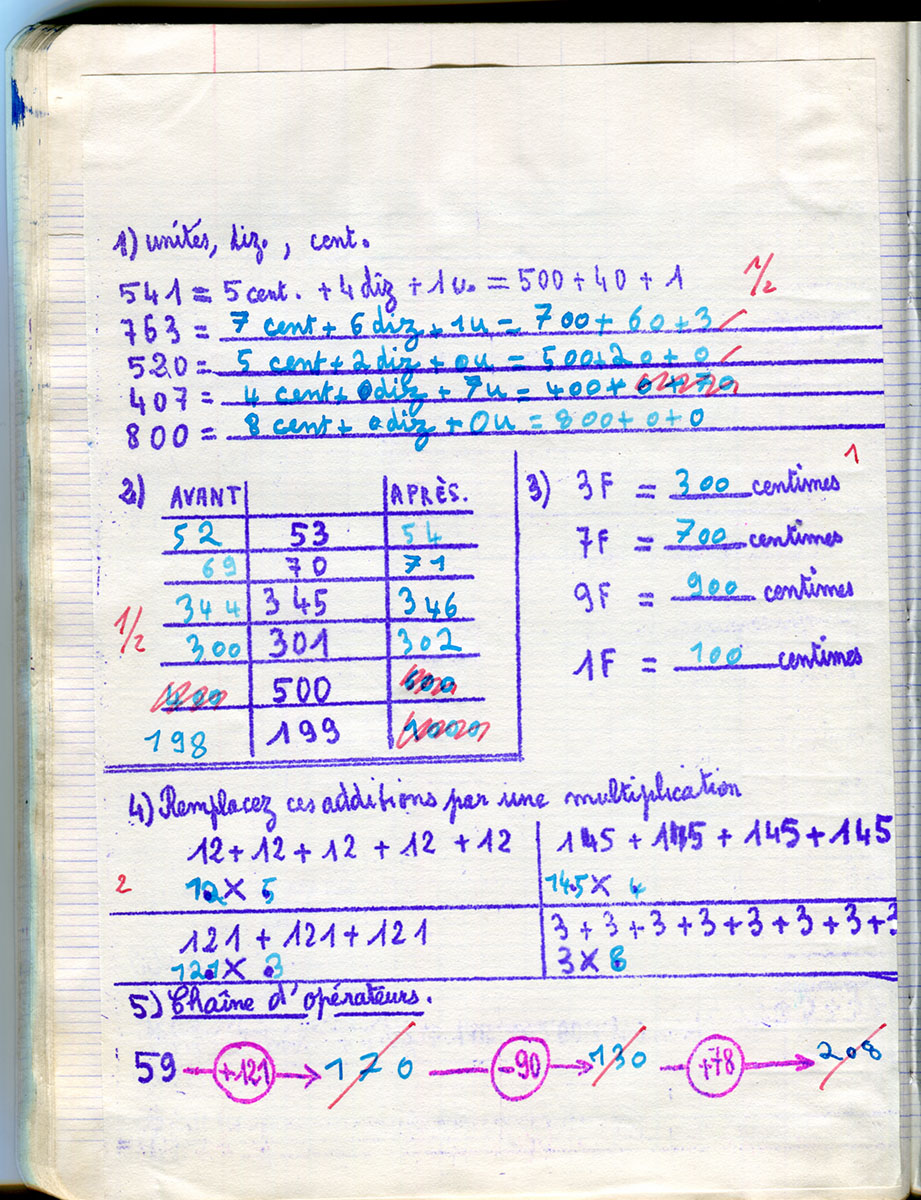 1) unités, diz., cent.
541 = 5 cent. + 4 diz + 1 u. = 500 + 40 + 1
1/2
763 = 7 cent + 6 diz + 1u = 700 + 60 + 3
520 = 5 cent + 2 diz + 0u = 500 + 20 + 0
407 = 4 cent + 0 diz + 7u = 400 + 0 + 70
800 = 8 cent + 0 diz + 0u = 800 + 0 + 0
2) AVANT APRÈS.
52 53 54
69 70 71
344 345 346
1/2
300 301 302
400 500 600
198 199 1000
1
3) 3F = 300 centimes
7F = 700 centimes
9F = 900 centimes
1F = 100 centimes
4) Remplacez ces additions par une multiplication
12 + 12 + 12 + 12 + 12
12 × 5
145 + 145 + 145 + 145
145 × 4
2
121 + 121 + 121
121 × 3
3 + 3 + 3 + 3 + 3 + 3 + 3 + 3
3 × 8
5) Chaîne d'opérateurs.
59 +121 170 -90 130 +78 208